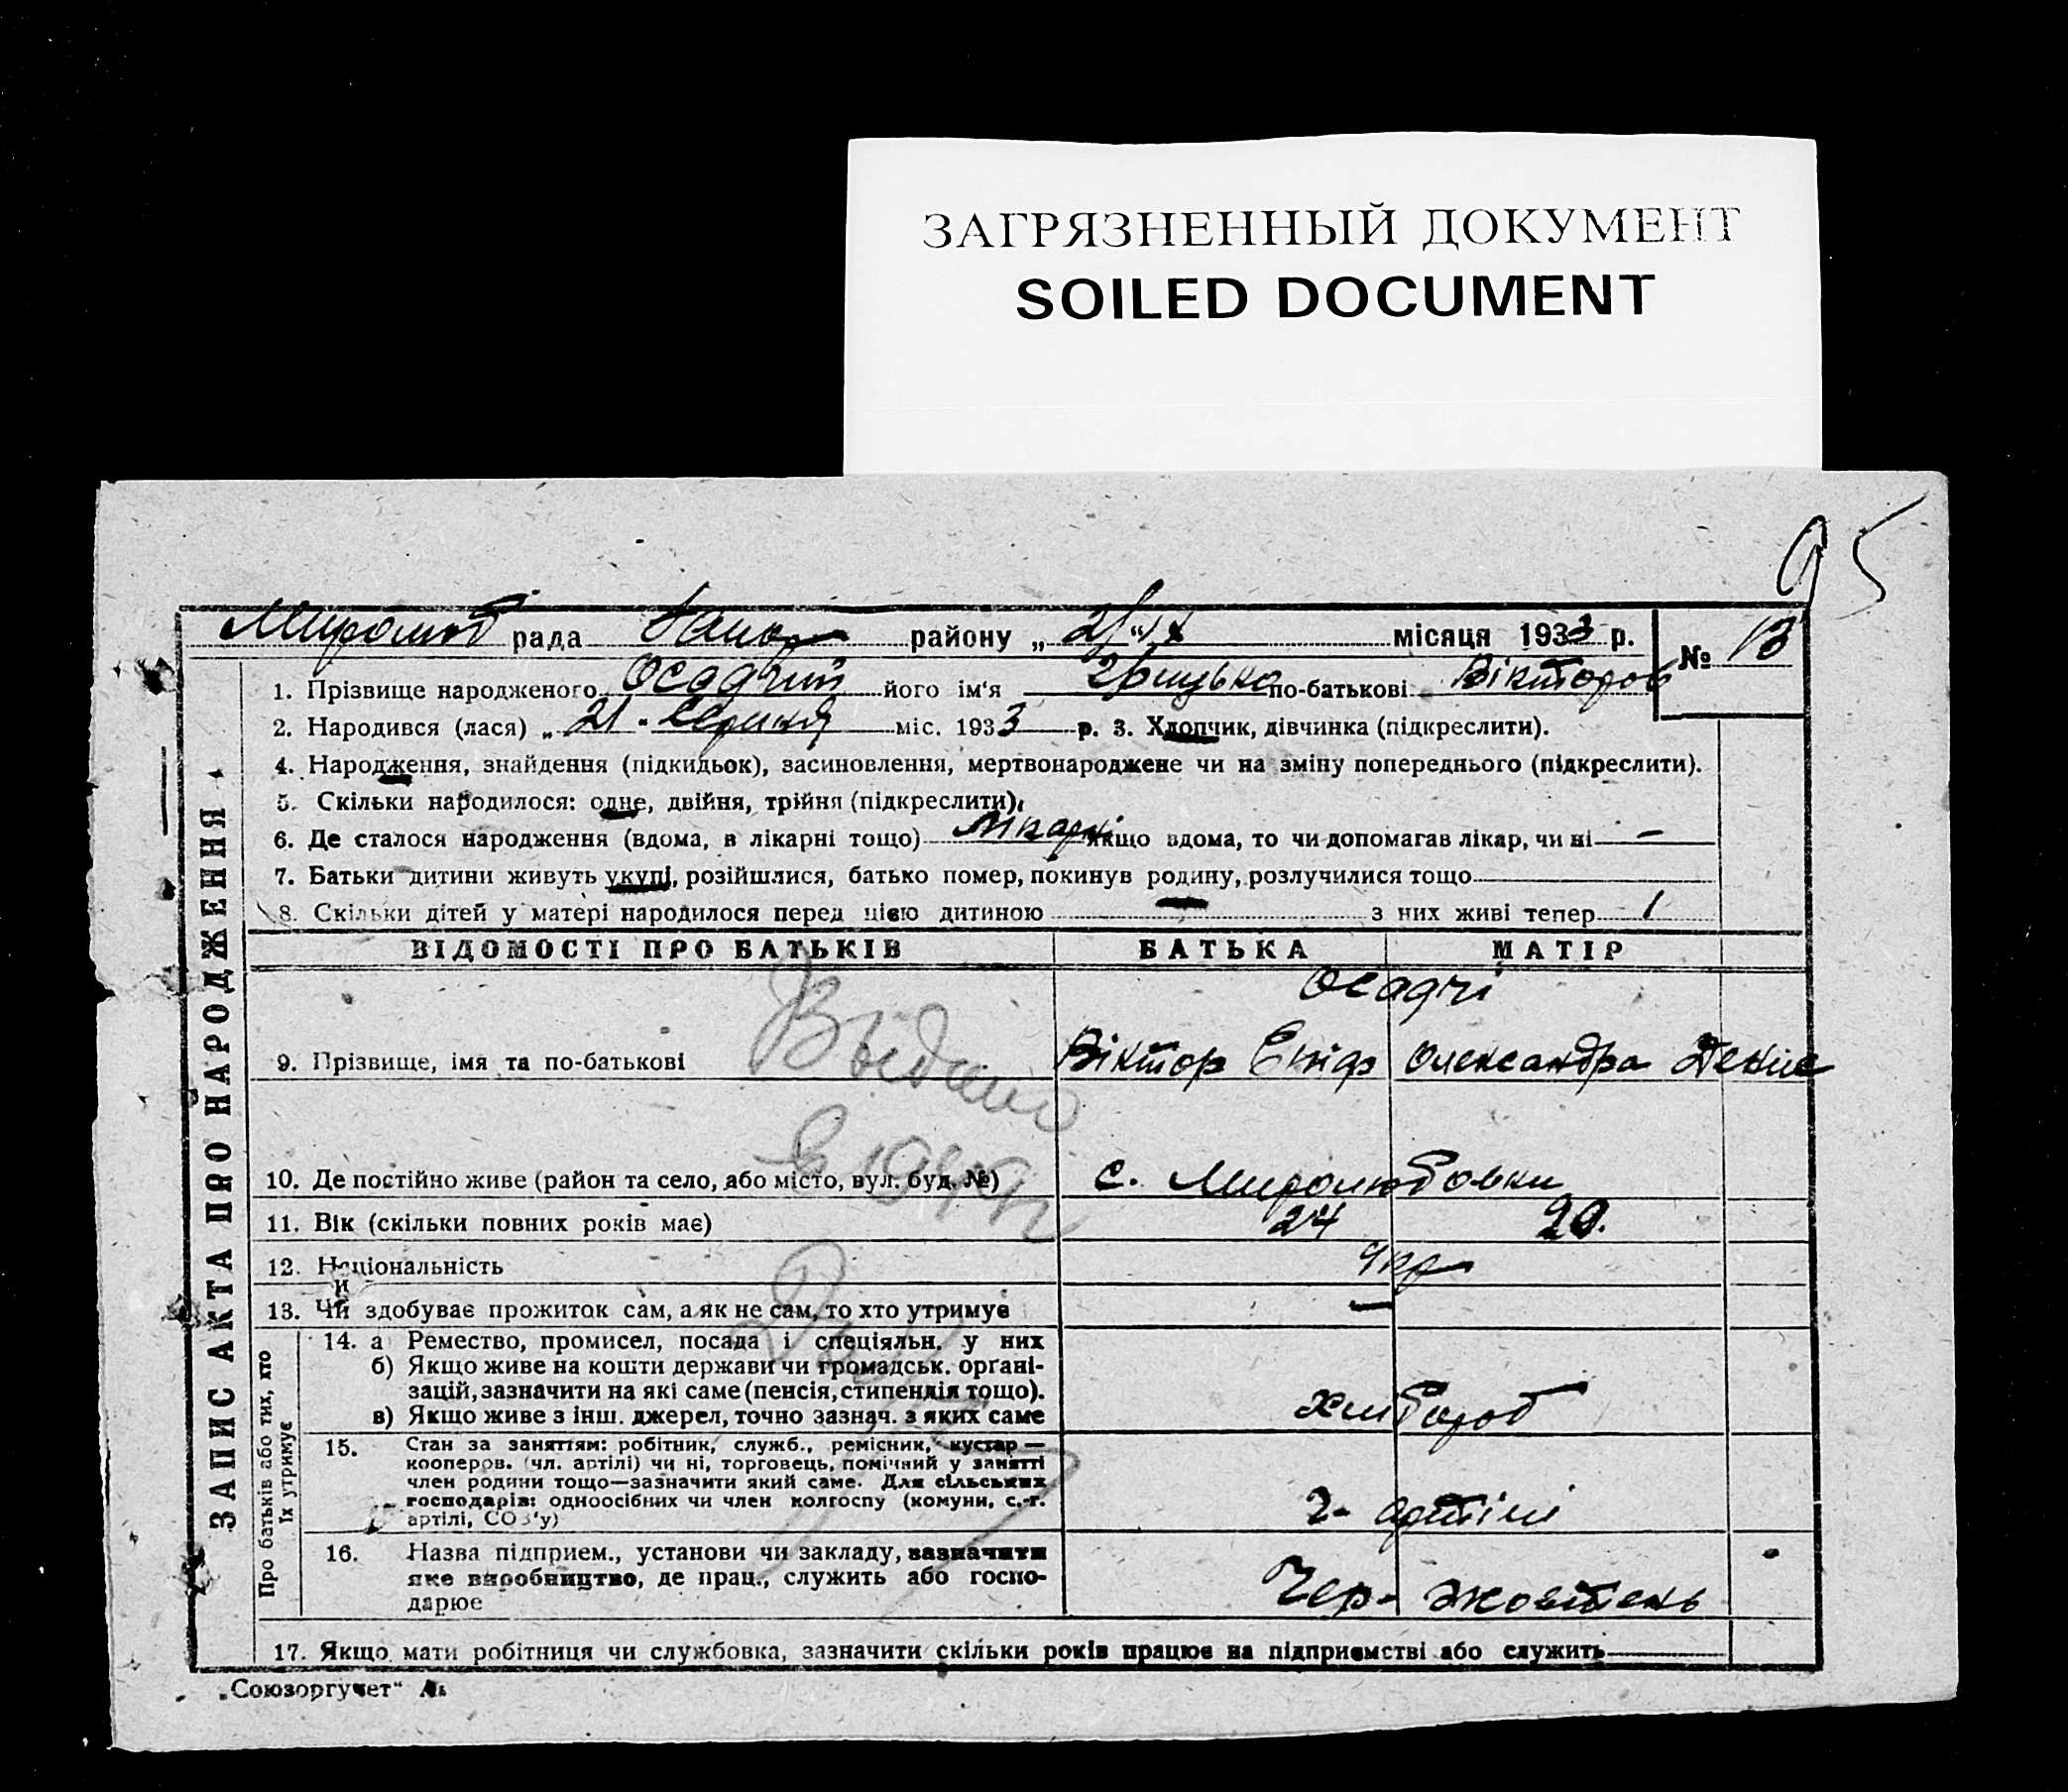 ЗАГРЯЗНЕННЫЙ ДОКУМЕНТ
SOILED DOCUMENT
95
Миролюб рада району „ 21 “ IX місяця 1933 р. № 13
1. Прізвище народженого Осадчий його ім‘я Грицько по-батькові Вікторов
2. Народився (лася) „ 21 - серпня міс. 1933 р. 3. Хлопчик, дівчинка (підкреслити).
4. Народження, знайдення (підкидьок), засиновлення, мертвонароджене чи на зміну попереднього (підкреслити).
5. Скільки народилося: одне, двійня, трійня (підкреслити).
6. Де сталося народження (вдома, в лікарні тощо) якщо вдома, то чи допомагав лікар, чи ні —
7. Батьки дитини живуть укупі, розійшлися, батько помер, покинув родину, розлучилися тощо
8. Скільки дітей у матері народилося перед цією дитиною — з них живі тепер 1
ВІДОМОСТІ ПРО БАТЬКІВ БАТЬКА МАТІР
Осадчі
9. Прізвище, імя та по-батькові Віктор Епіф Олександра Денис
10. Де постійно живе (район та село, або місто, вул. буд. №) с. Миролюбовки
11. Вік (скільки повних років має) 24 20.
12. Національність укр
13. Чи здобуває прожиток сам, а як не сам, то хто утримує —
14. а Ремество, промисел, посада і спеціяльн. у них
б) Якщо живе на кошти держави чи громадськ. органі-
зацій, зазначити на які саме (пенсія, стипендія тощо).
в) Якщо живе з інш. джерел, точно зазнач. з яких саме хлібороб
15. Стан за заняттям: робітник, служб., ремісник, кустар —
кооперов. (чл. артілі) чи ні, торговець, помічний у занятті
член родини тощо—зазначити який саме. Для сільських
господарів: одноосібних чи член колгоспу (комуни, с.-г.
артілі, СОЗ‘у) артілі
16. Назва підприєм., установи чи закладу, зазначити
яке виробництво, де прац., служить або госпо-
дарює Чер- жовтень
17. Якщо мати робітниця чи службовка, зазначити скільки років працює на підприємстві або служить
„Союзоргучет“
ЗАПИС АКТА ПРО НАРОДЖЕННЯ
Про батьків або тих, хто
їх утримує
Видано